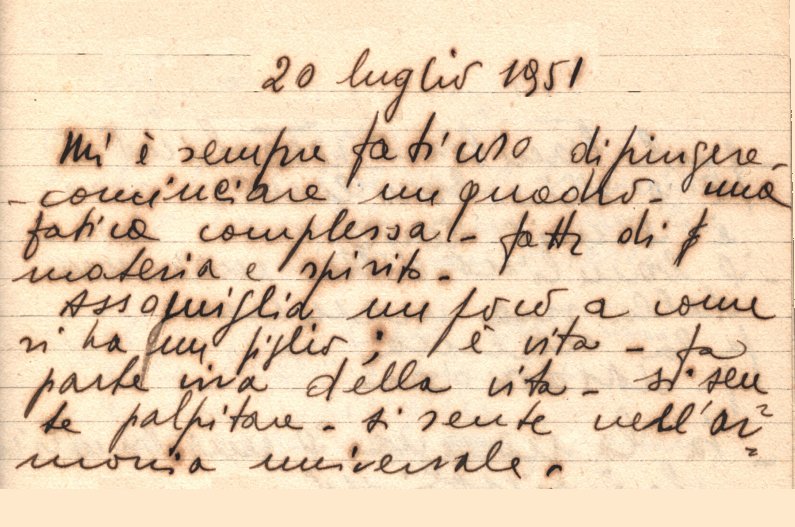 20 luglio 1951
Mi è sempre faticoso dipingere -
- cominciare un quadro - una
fatica complessa - fatta di
materia e spirito -
Assomiglia un poco a come
si ha un figlio ; è vita - fa
parte viva della vita - si sen
te palpitare - si sente nell'ar=
monia universale .